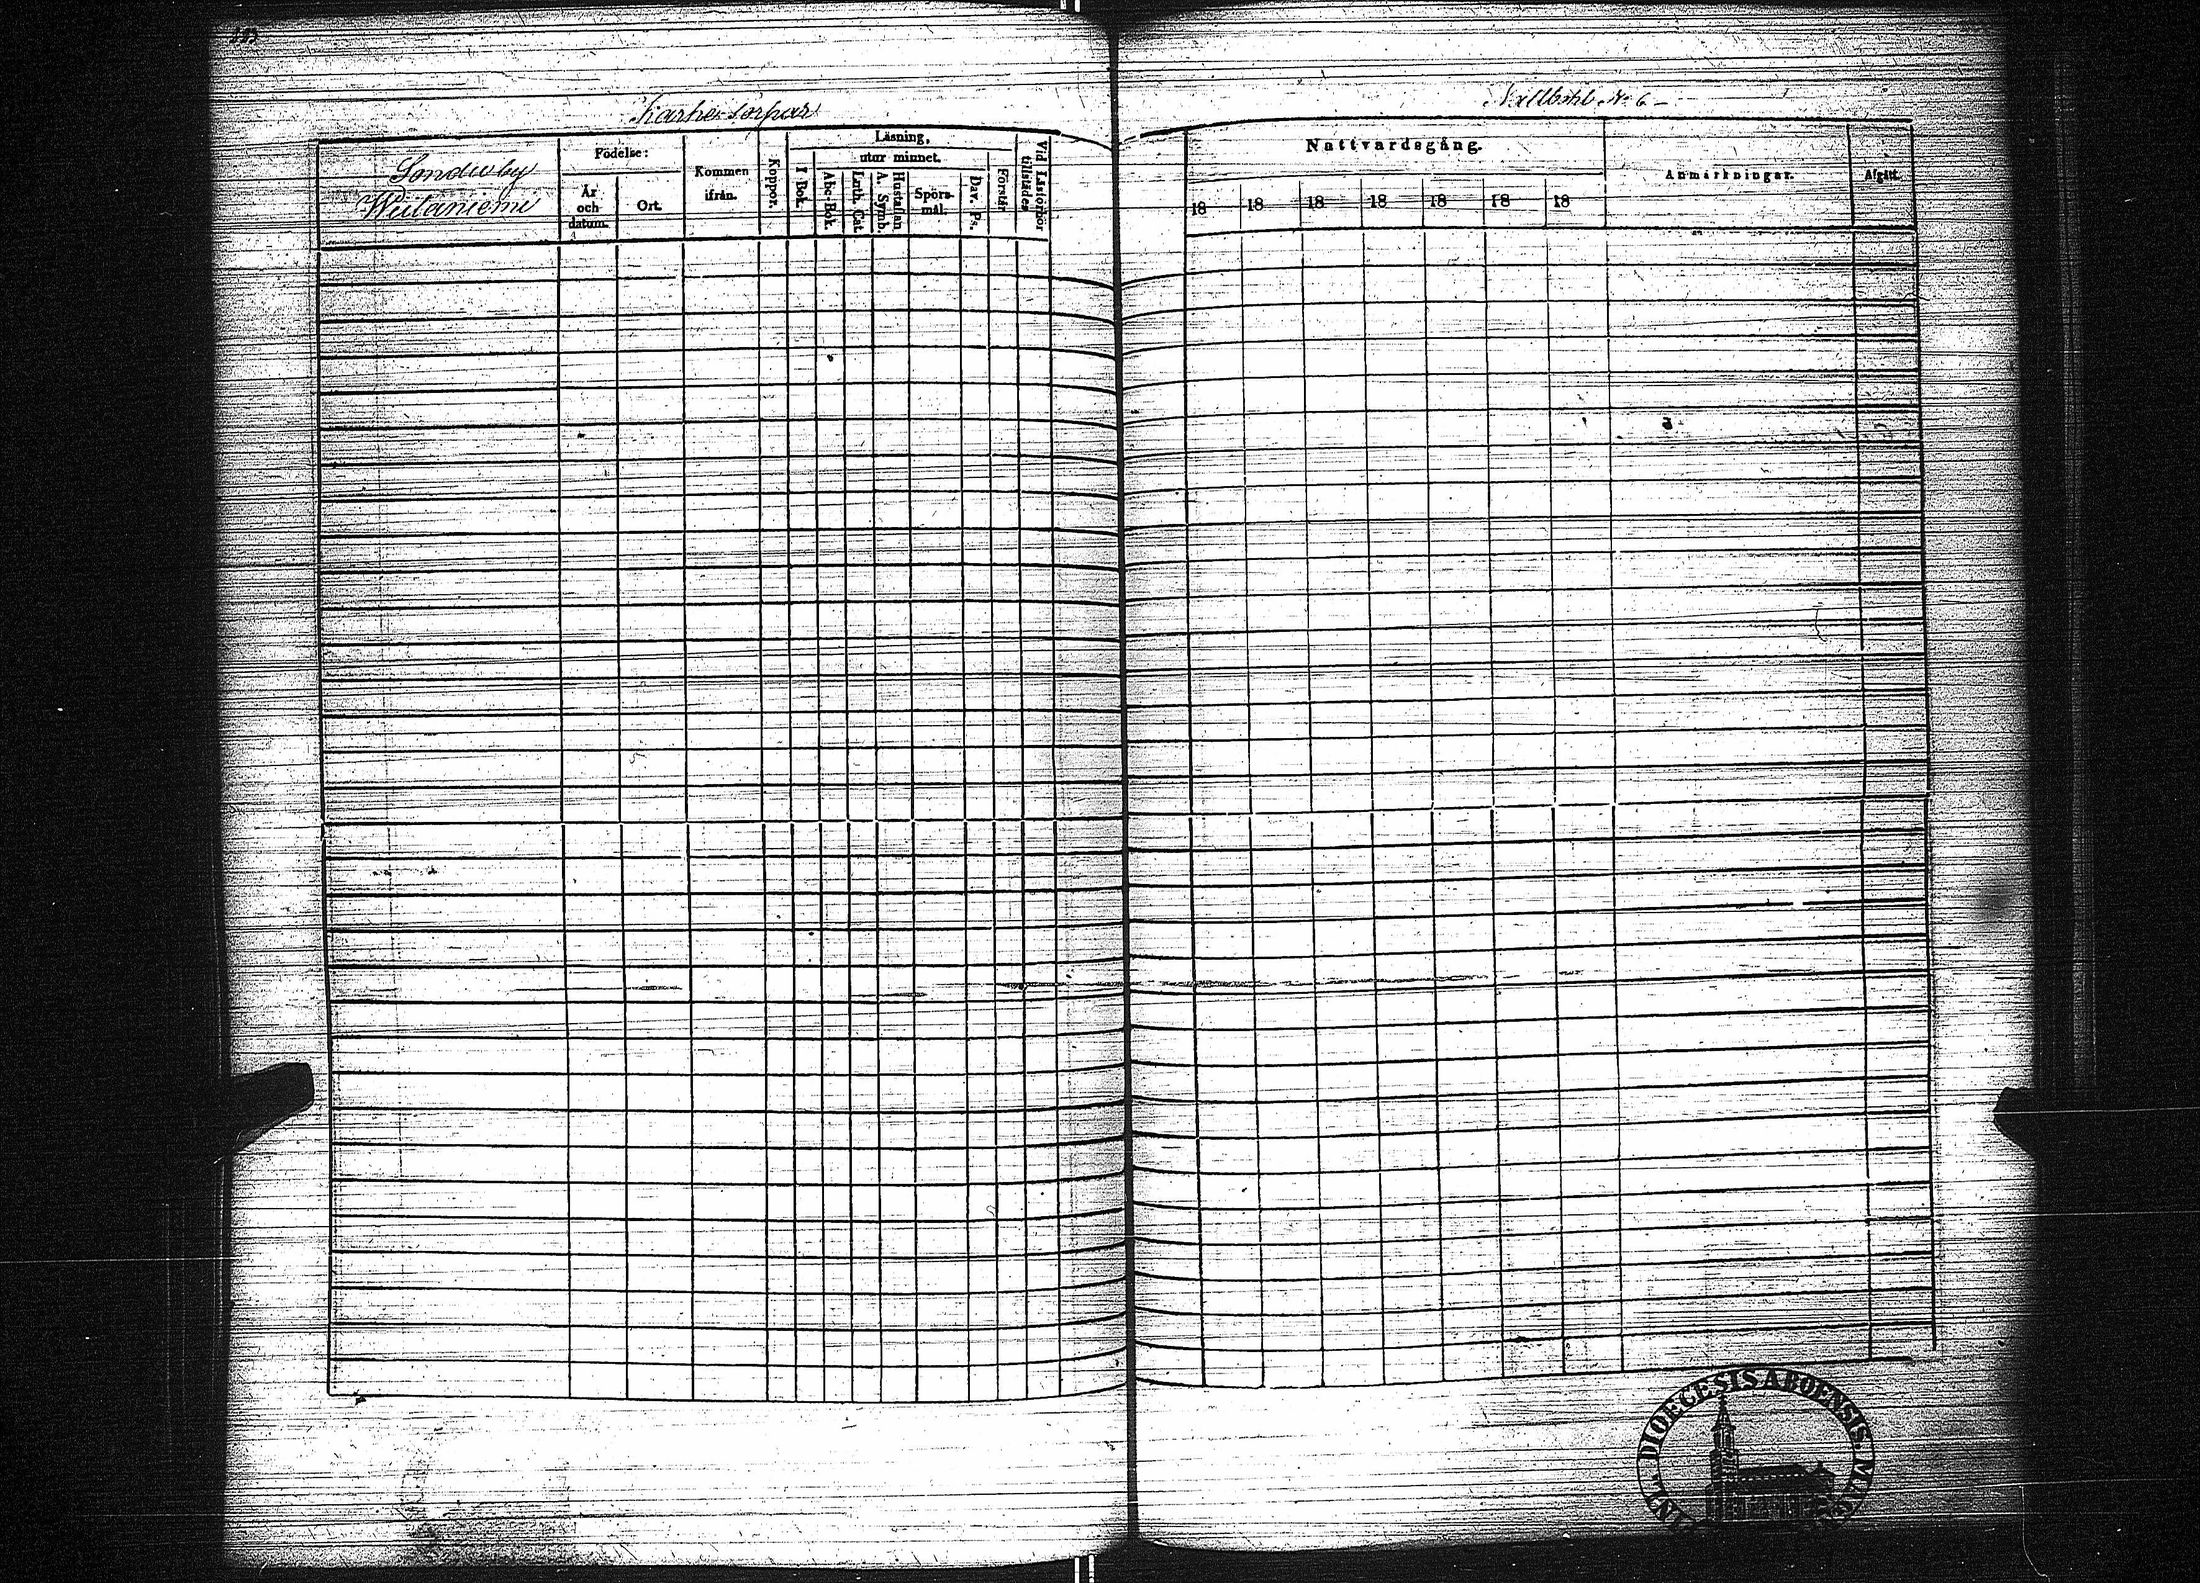 Sonduby
Födelse:
År
och
datum.
Ort.
Kommen
ifrån.
Koppor.
Läsning,
utur minnet.
I Bok.
Abc-Bok.
Luth. Cat.
Hustaflan
A. Symb.
Spörs-
mål.
Dav. Ps.
Förstår
Vid Läsförhör
tillstädes
No 6
Nattvardsgång.
18 18 18 18 18 18 18
Anmärkningar.
Afgått.
DIOECESIS ABOENSIS. MAG